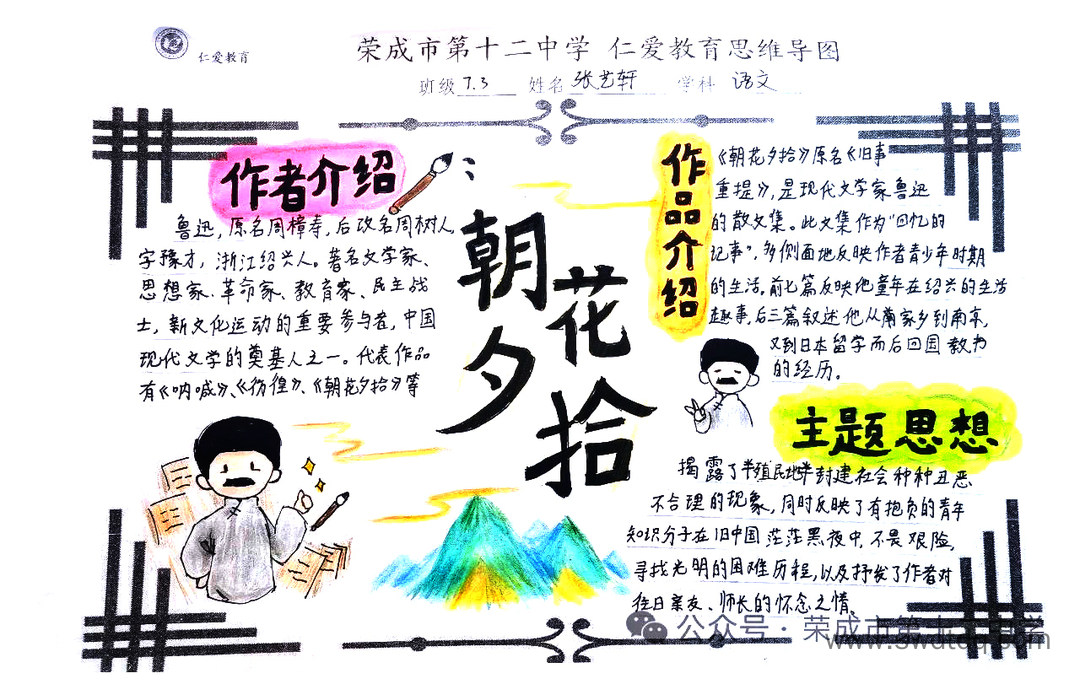 仁爱教育
荣成市第十二中学 仁爱教育思维导图
班级 7.3 姓名 张艺轩 学科 语文
作者介绍
鲁迅，原名周樟寿，后改名周树人，
字豫才，浙江绍兴人。著名文学家、
思想家、革命家、教育家、民主战
士，新文化运动的重要参与者，中国
现代文学的奠基人之一。代表作品
有《呐喊》、《彷徨》、《朝花夕拾》等
朝花夕拾
作品介绍
《朝花夕拾》原名《旧事
重提》，是现代文学家鲁迅
的散文集。此文集作为"回忆的
记事"，多侧面地反映作者青少年时期
的生活。前七篇反映他童年在绍兴的生活
趣事，后三篇叙述他从离家乡到南京，
又到日本留学而后回国教书
的经历。
主题思想
揭露了半殖民地半封建社会种种丑恶
不合理的现象，同时反映了有抱负的青年
知识分子在旧中国茫茫黑夜中，不畏艰险，
寻找光明的困难历程，以及抒发了作者对
往日亲友、师长的怀念之情。
公众号·荣成市第十二中学